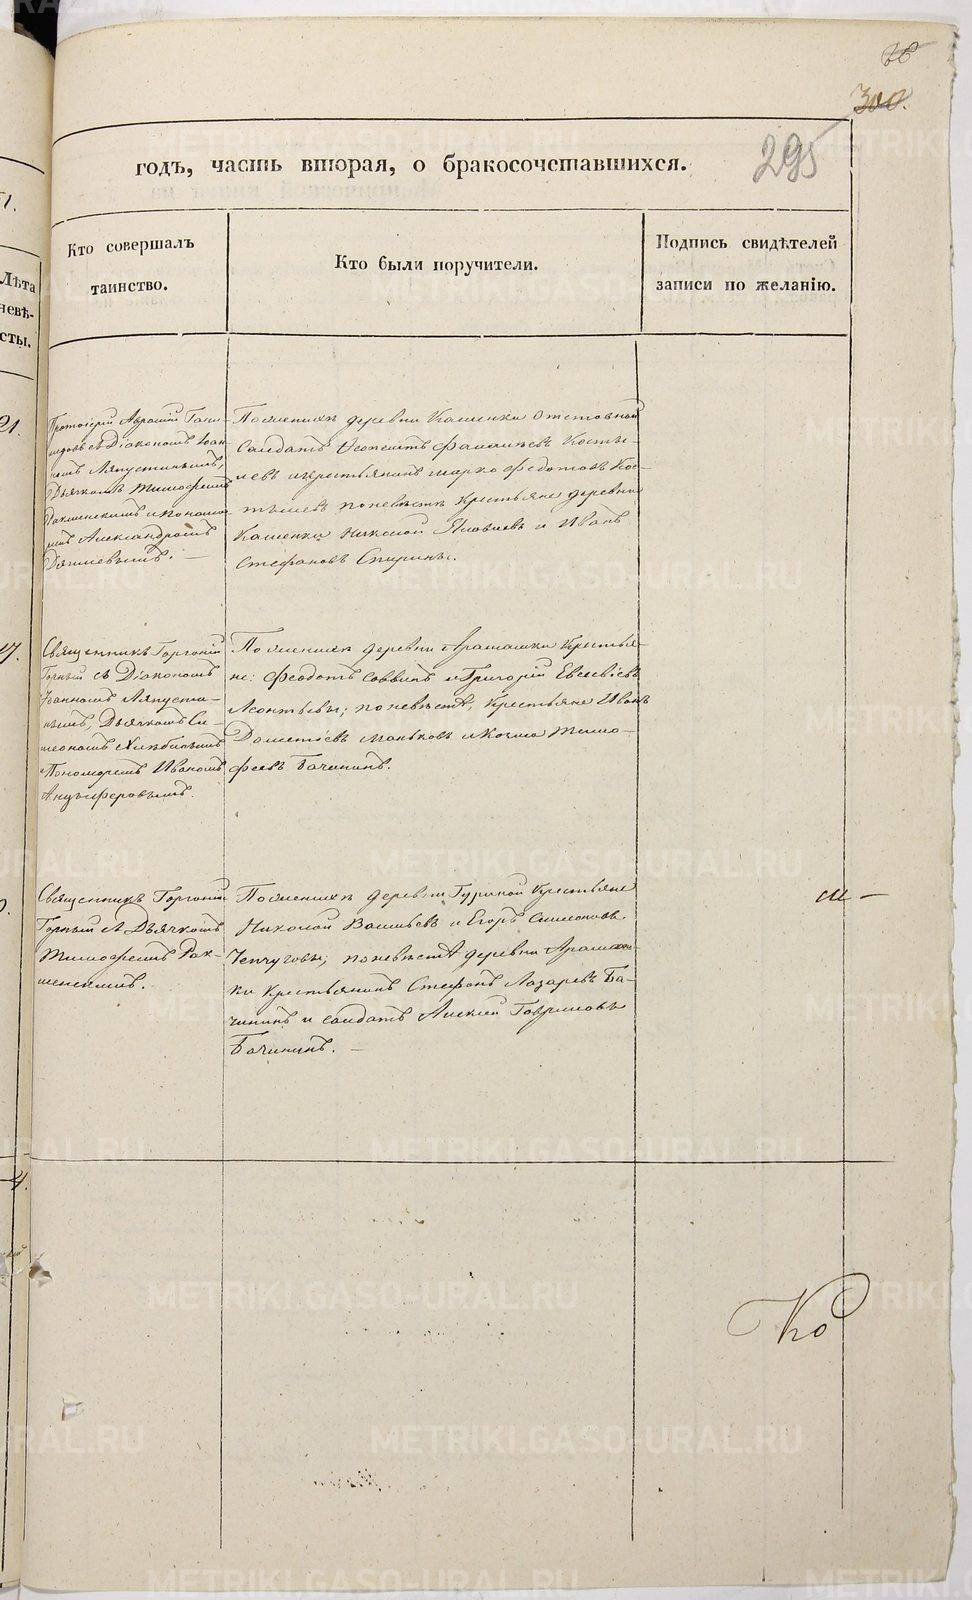 300.
295
годъ, часть вторая, о бракосочетавшихся.
Кто совершалъ
таинство.
Кто были поручители.
Подпись свидѣтелей
записи по желанію.
Лѣта
невѣ-
сты.
21.
Протоіерей
съ Діакономъ Іоан-
номъ Ляпустинымъ,
Дьячкомъ Тимофеемъ
и Понома-
ремъ Александромъ
По женихѣ деревни Каменки отставной
Солдатъ Косты-
левъ и крестьянинъ Марко Федотовъ Кос-
тылевъ по невѣстѣ крестьяне деревни
Каменки Николай Яковлевъ и Иванъ
Стефановъ Спирины.
Священникъ Горгоній
Горный съ Діакономъ
Іоанномъ Ляпусти-
нымъ, Дьячкомъ Си-
меономъ Хлѣбинымъ
и Пономаремъ Иваномъ
Анцыферовымъ.
По женихѣ деревни Арамашки Крестья-
не: Феодотъ Саввинъ и Григорій Евсевіевъ
Леонтьевы; по невѣстѣ, Крестьяне Иванъ
Дометіевъ Маньковъ и Козма Тимо-
феевъ Бачининъ.
Священникъ Горгоній
Горный съ Дьячкомъ
Тимофеемъ Рак-
По женихѣ деревни Гуриной Крестьяне
Николай Васильевъ и Егоръ Симеоновъ
Чепчуговы; по невѣстѣ деревни Арамаш-
ки Крестьянинъ Стефанъ Лазаревъ Ба-
чининъ и солдатъ Алексѣй Гавриловъ
Бачининъ.
4.
Ко
METRIKI.GASO-URAL.RU